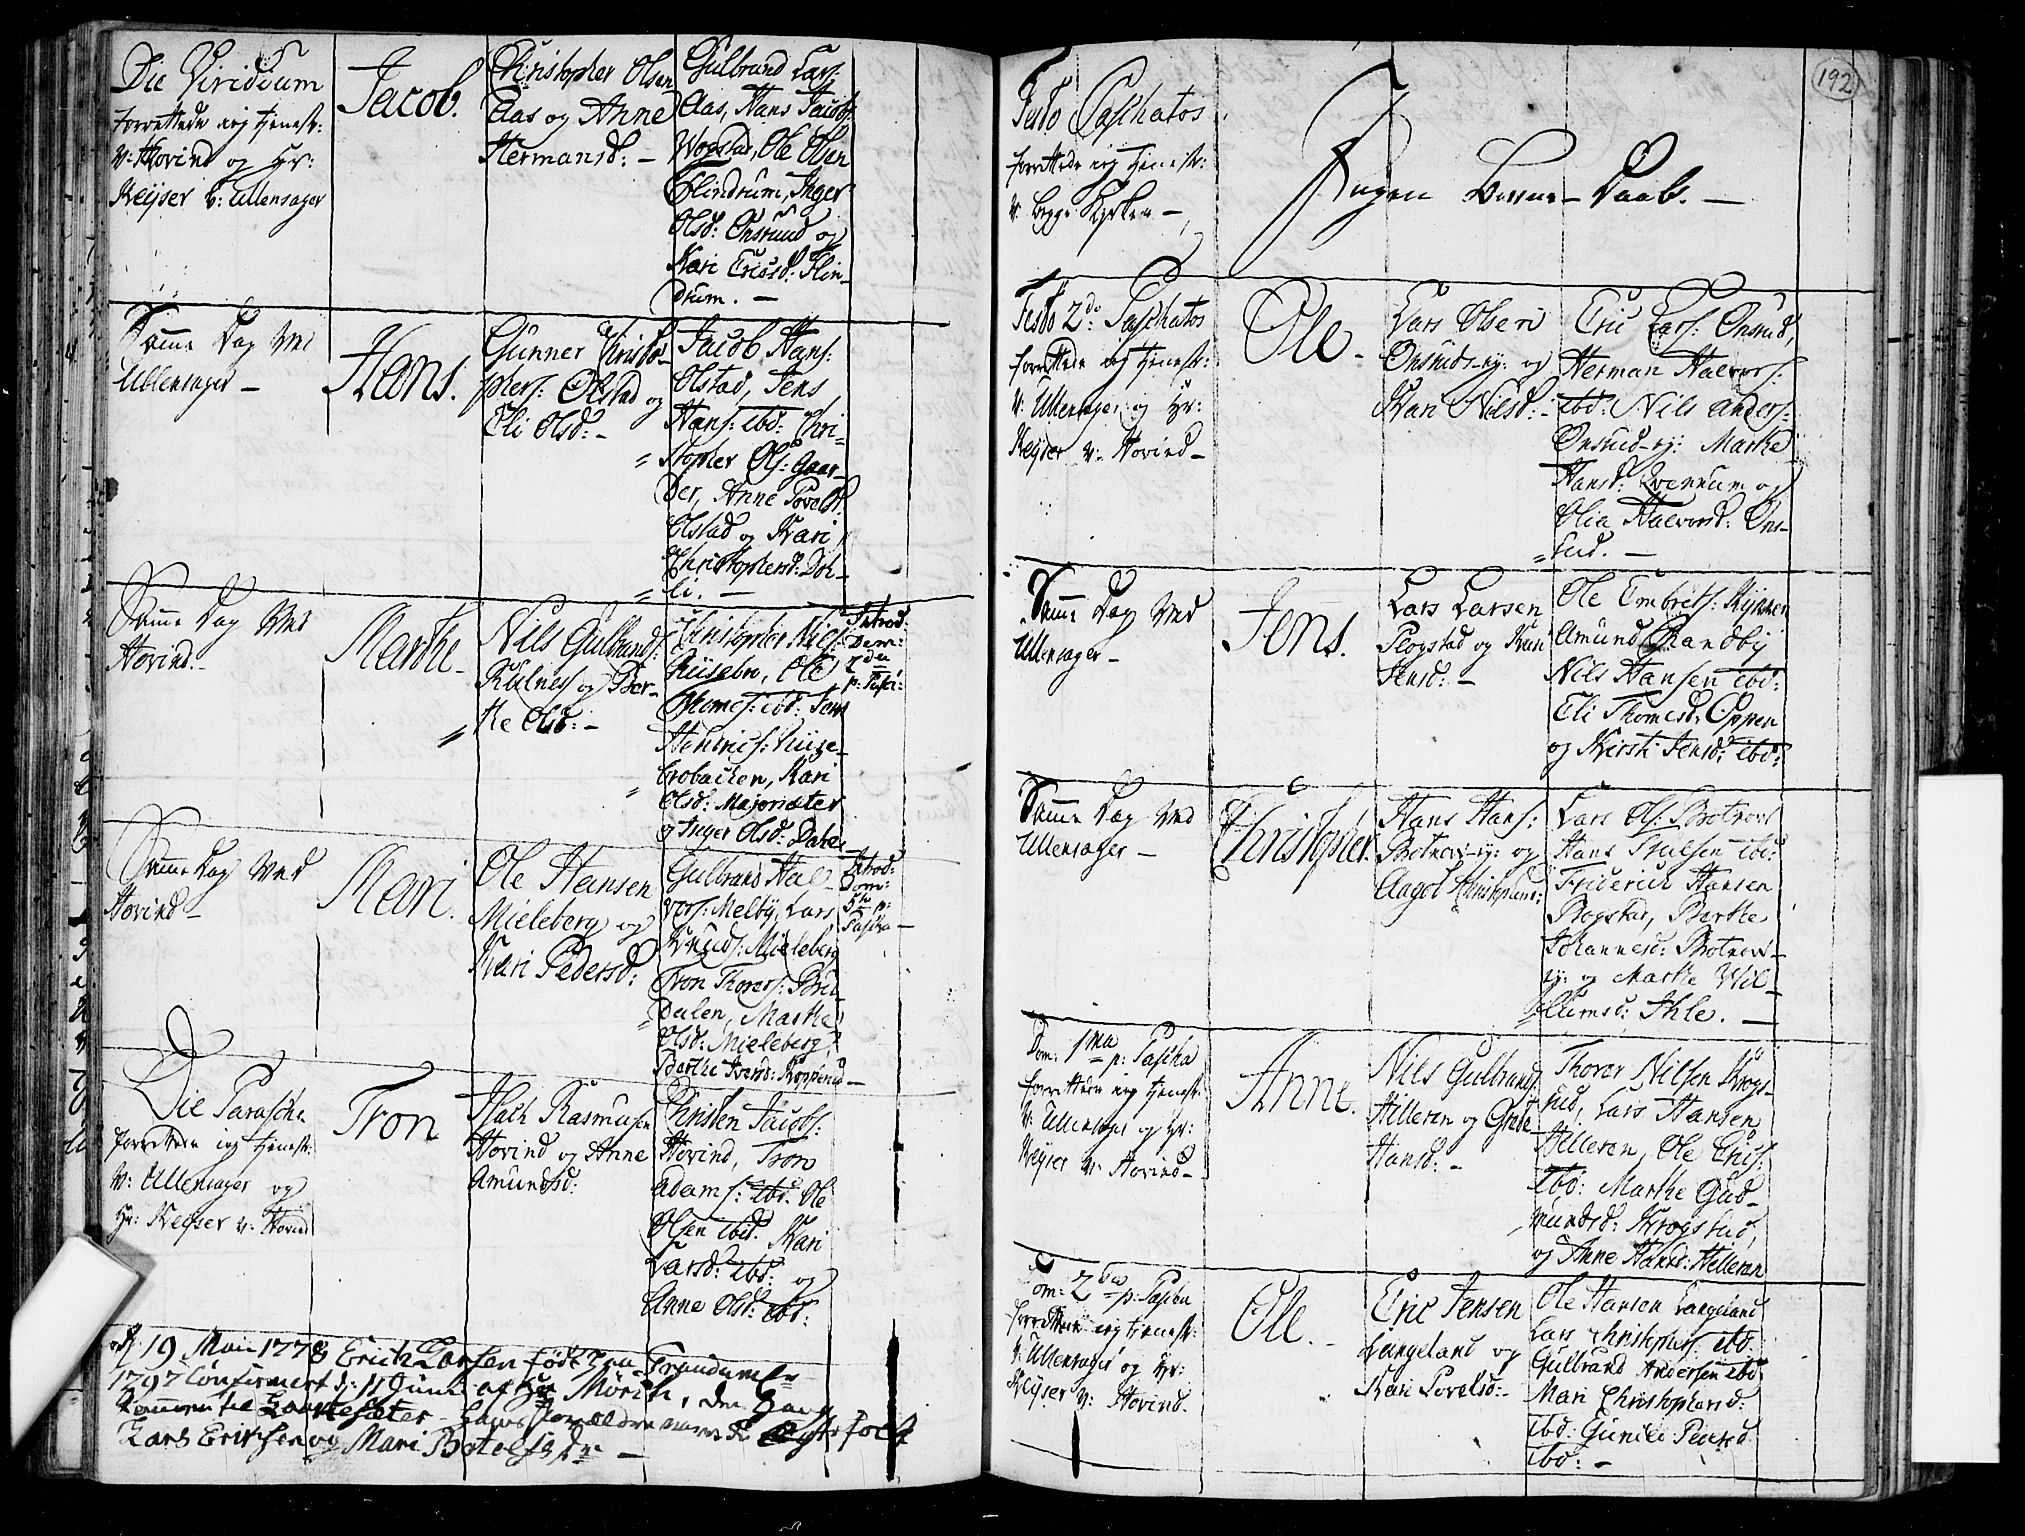 Die Viridium
forrettede ieg tienest:
v: Hovind og Hr:
Keyser v: Ullensager
Jacob.
Christopher Olsen
Aas og Anne
Hermansd: -
Gulbrand Lars:
Aas, Hans Jacobs:
Wogstad, Ole Olsen
Flindrum, Inger
Olsd: Onsrud og
Kari Ericsd: Flin-
drum. -
Samme Dag ved
Ullensager -
Hans.
Gunner Christo-
phers: Olstad og
Eli Olsd: -
Jacob Hans:
Olstad, Jens
Hans: ibd: Chri=
stopher Ols: Gaar-
der, Anne Povelsd:
Olstad og Kari
Christophersd: Doh-
li. -
Samme Dag ved
Hovind. -
Marthe -
Nils Gulbrands:
Kulnes og Ber-
the Olsd: -
Christopher Niels:
Riisebro, Ole
Thomes: ibd: Jens
Henrics: Riise-
brobachen, Kari
Olsd: Majorsæter
og Inger Olsd: Dahl
Introd:
Dom:
2da
p: Pasc:
Samme Dag ved
Hovind -
Mari.
Ole Hansen
Mieleberg og
Kari Pedersd:
Gulbrand Hal-
vors: Melby, Lars
Knuds: Mieleberg
Tron Thorers:
dalen, Marthe
Olsd: Mieleberg,
Berthe Iversd: Kopperud -
Introd:
Dom:
5te p:
Pascha -
Die Parasche
forrettede ieg tienest:
v: Ullensager og
Hr: Keyser v: Hovind
Tron
Rasmusen
Hovind og Anne
Amundsd:
Christen Jacobs:
Hovind, Tron
Adams: ibd. Ole
Olsen ibd. Kari
Larsd: ibd: og
Anne Olsd: ibd:
d. 19 Mai 1778 Erich Larsen født paa Trandum
1797 Confirmert d: 11 Juni af Hr Mørch, den Gang
kommen til - hans Forældre vare Ægtefolk
Lars Eriksen og Mari Botolfsdr -
192
Festo Paschatos
forrettede ieg tienest:
v: begge Kirker -
Ingen Børne-Daab. -
Festo 2do Paschatos
forrettede ieg tienest:
v: Ullensager og Hr:
Keyser v: Hovind -
Ole -
Lars Olsen
Onsrud-ey: og
Kari Nilsd: -
Eric Lars: Onsrud,
Herman Halvors:
ibd: Nils Anders:
Onsrud-ey: Marthe
Hansd: Qvennum og
Olia Halvorsd: Ons-
rud. -
Samme Dag ved
Ullensager -
Jens.
Lars Larsen
Rogstad og Kari
Jensd: -
Ole Embrets:
Amund Brandby
Nils Hansen ibd:
Eli Thomesd: Oppen
og Kirsti Jensd: ibd:
Samme Dag ved
Ullensager -
Christopher.
Hans Hans:
Botner-ey: og
Aagot Christophersd:
Lars Ols: Botner
Hans Trulsen ibd:
Friderich Hansen
Rogstad, Berthe
Johannesd: Botner-
ey: og Marthe Wil-
lumsd: Ihle. -
Dom: 1ma p: Pascha
forrettede ieg tienest:
v: Ullensager og Hr:
Keyser v: Hovind -
Anne.
Nils Gulbrands:
Hilleren og Grete
Hansd: -
Thorer Nilsen Krogs-
rud, Lars Hansen
Hilleren, Ole Erics:
ibd: Marthe Gud-
mundsd: Krogsrud,
og Anne Hansd: Hilleren
Dom: 2da p: Pascha
forrettede ieg tienest:
v: Ullensager og Hr:
Keyser v: Hovind.
Ole. -
Eric Jensen
Langeland og
Kari Povelsd: -
Ole Hansen Langeland
Lars Christophers: ibd:
Gulbrand Andersen ibd
Mari Christophersd:
ibd: Gunild Pedersd
ibd: -